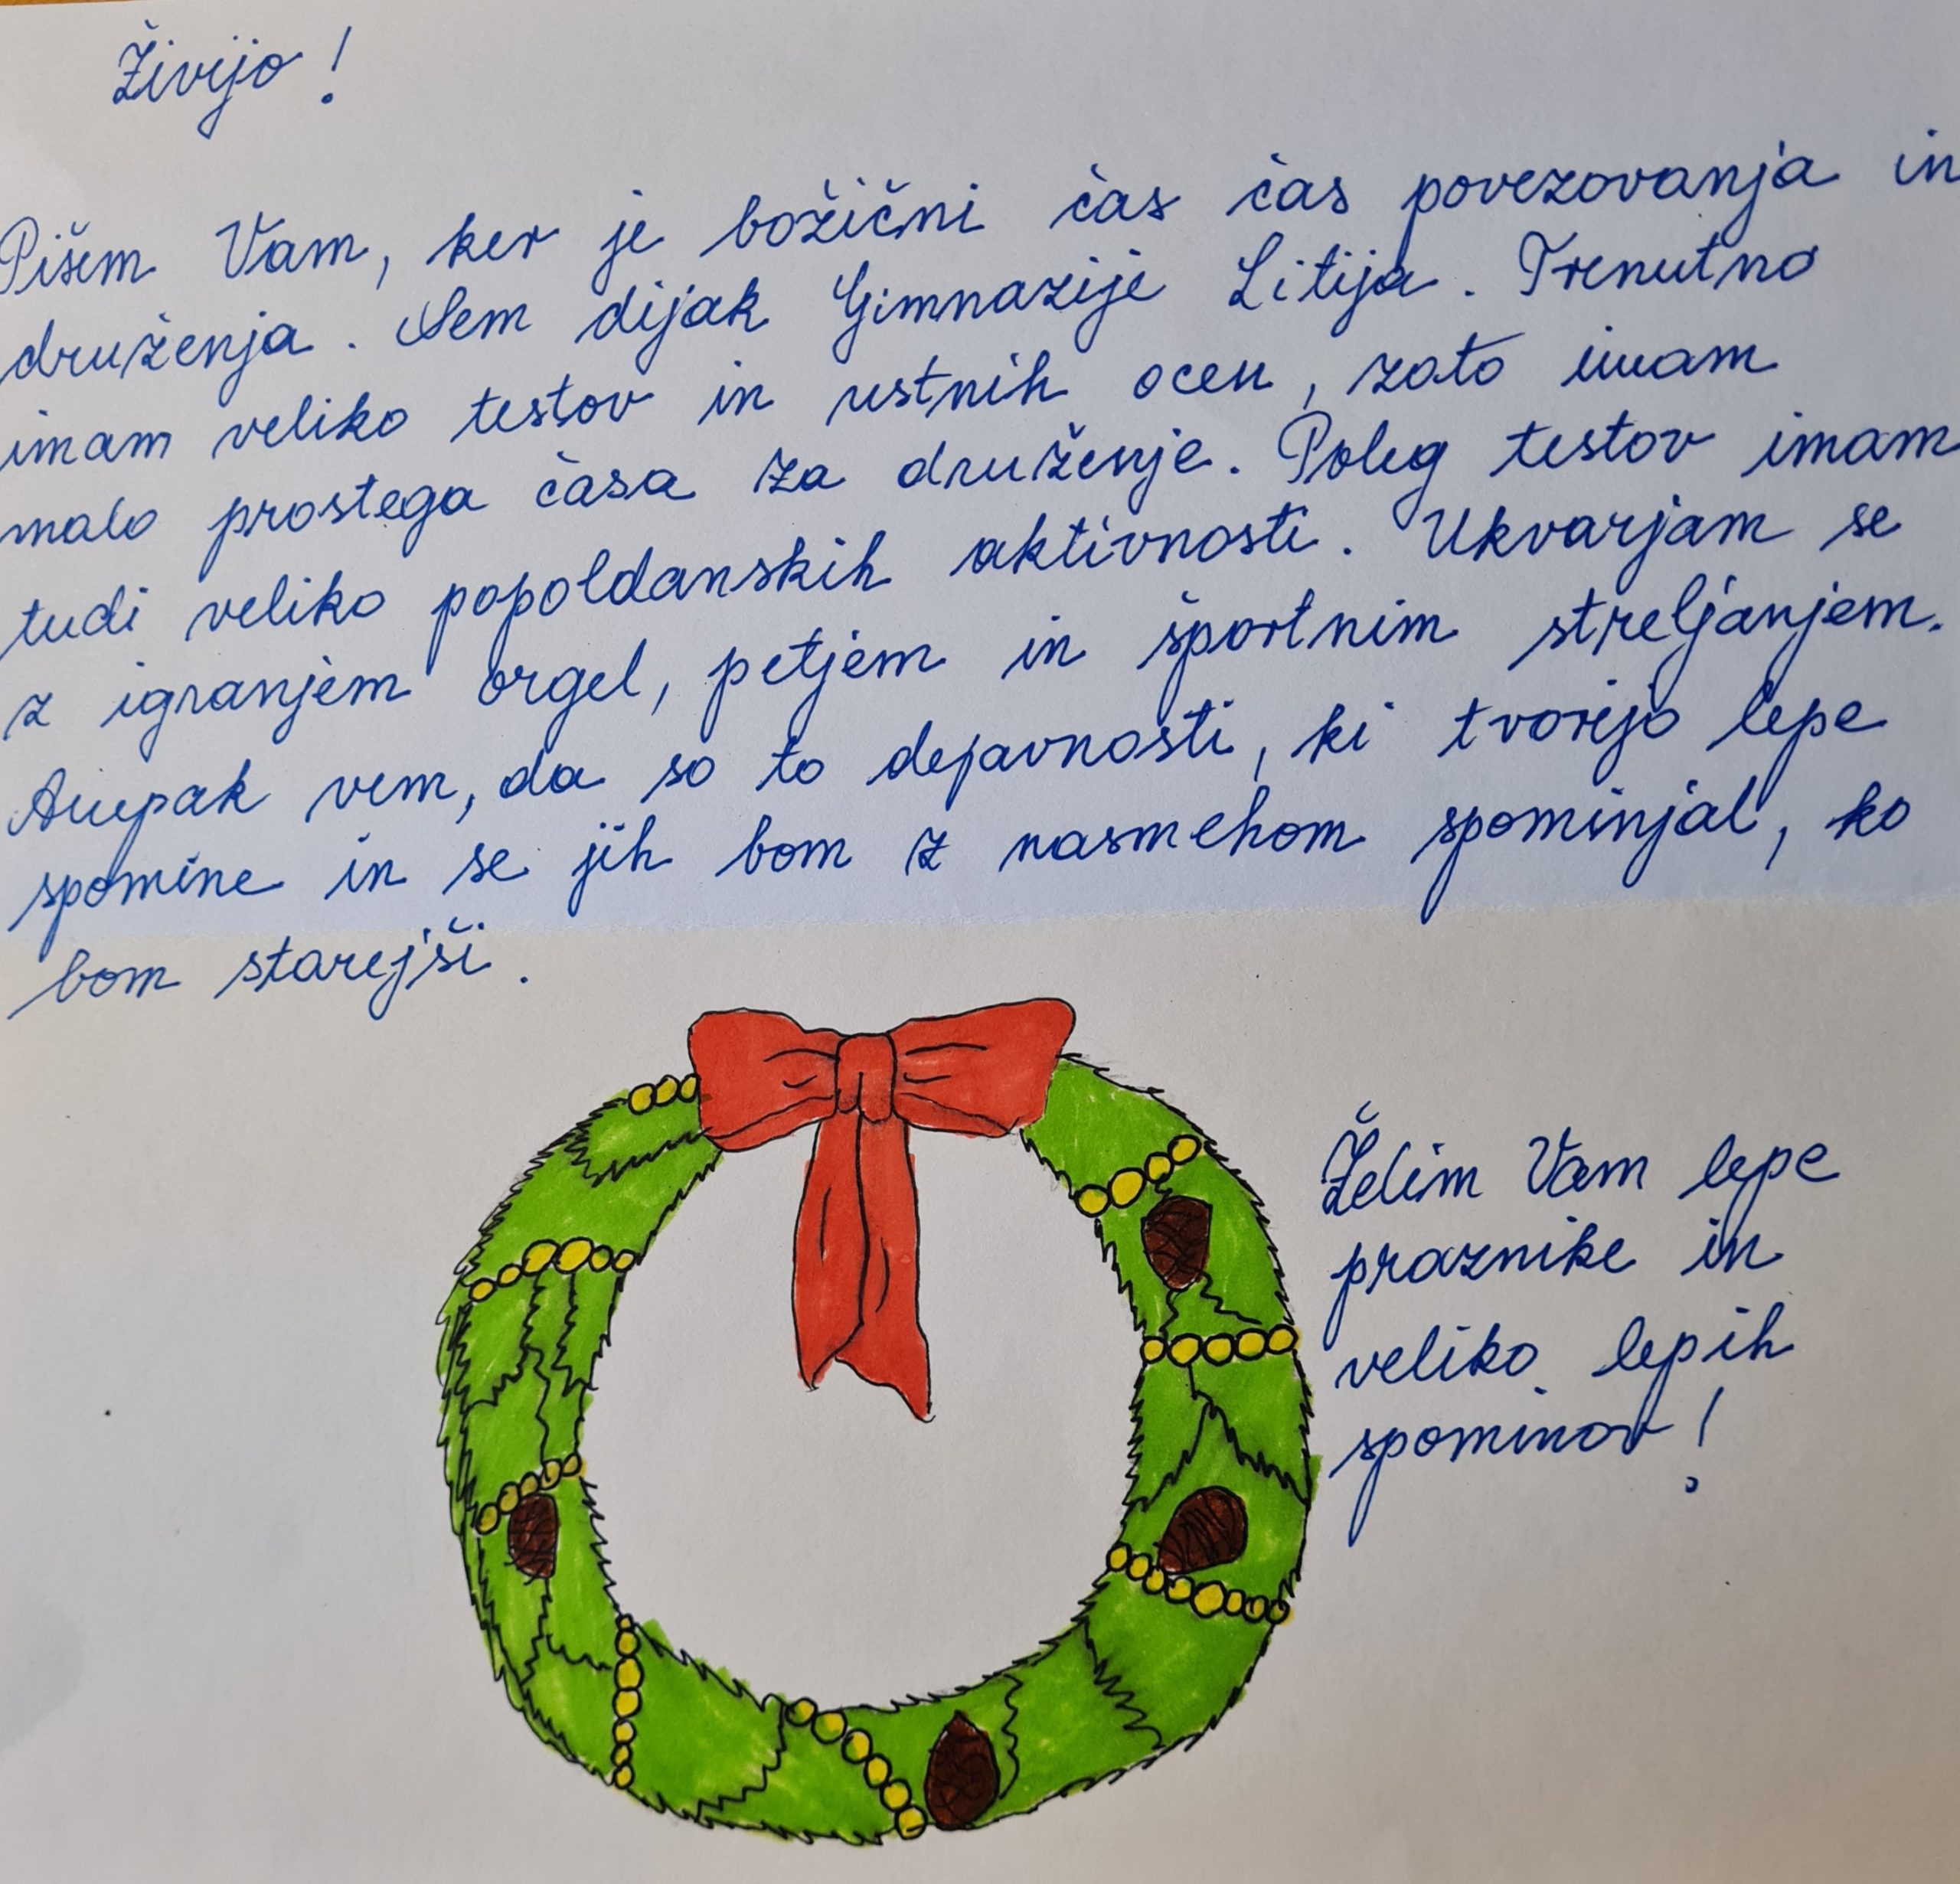 Živijo!
Pišem Vam, ker je božični čas čas povezovanja in
druženja. Sem dijak Gimnazije Litija. Trenutno
imam veliko testov in ustnih ocen, zato imam
malo prostega časa za druženje. Poleg testov imam
tudi veliko popoldanskih aktivnosti. Ukvarjam se
z igranjem orgel, petjem in športnim streljanjem.
Ampak vem, da so to dejavnosti, ki tvorijo lepe
spomine in se jih bom z nasmehom spominjal, ko
bom starejši.
Želim Vam lepe
praznike in
veliko lepih
spominov!